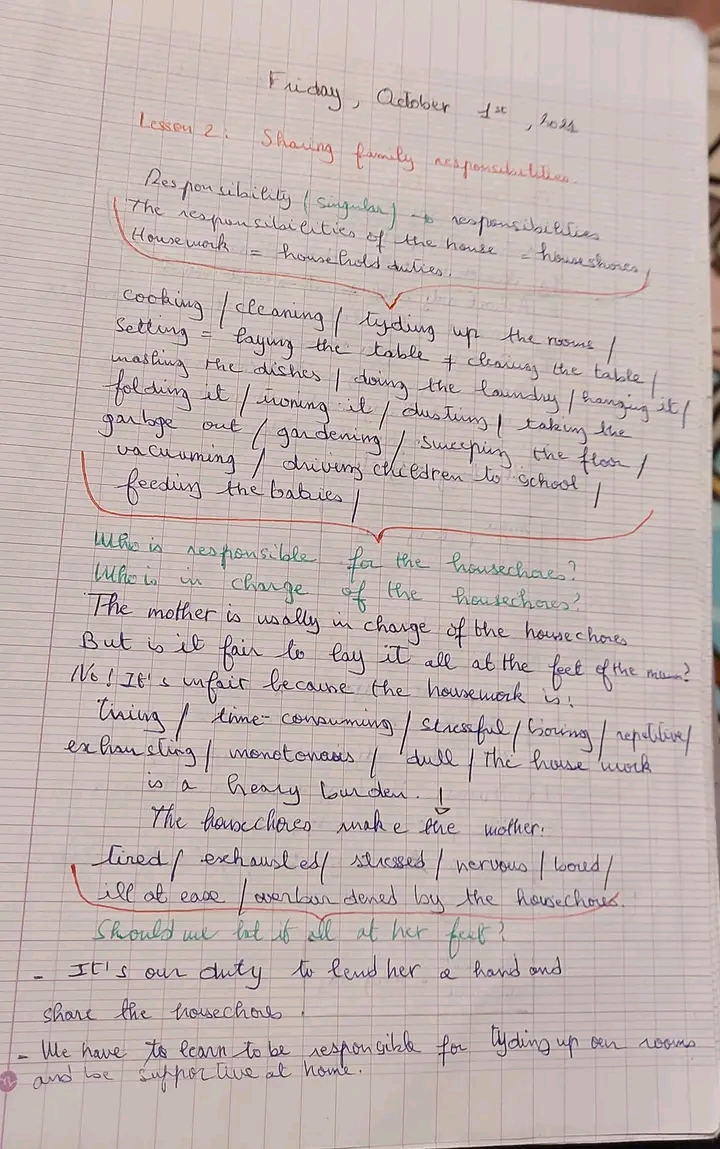 Friday, October 1st, 2021
Lesson 2: Sharing family responsibilities.
Responsibility (singular) → responsibilities
The responsibilities of the house = houseshores/
Housework = household duties.
cooking / cleaning / tyding up the rooms /
Setting = laying the table + clearing the table /
washing the dishes / doing the laundry / hanging it /
folding it / ironing it / dusting / taking the
garbage out / gardening / sweeping the floor /
vacuuming / driving children to school /
feeding the babies /
Who is responsible for the housechores?
Who is in charge of the housechores?
The mother is usally in charge of the housechores
But is it fair to lay it all at the feet of the mum?
No! It's unfair because the housework is:
tiring / time-consuming / stressful / boring / repetitive /
exhausting / monotonous / dull / The house work
is a heavy burden. ↓
The housechores make the mother:
tired / exhausted / stressed / nervous / bored /
ill at ease / overburdened by the housechores.
Should we let it all at her feet?
- It's our duty to lend her a hand and
share the housechores.
- We have to learn to be responsible for tyding up our rooms
and be supportive at home.